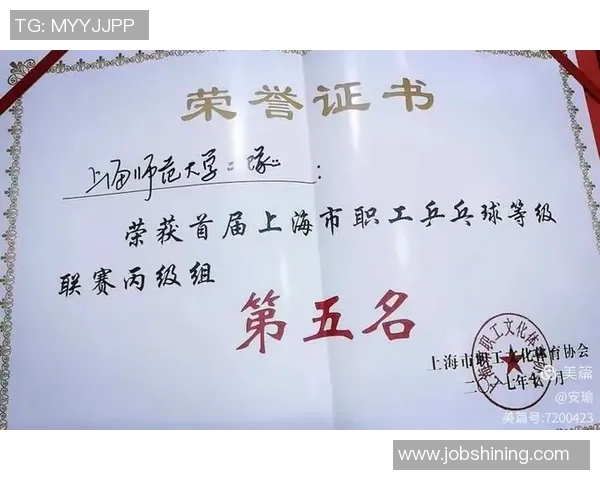 TG: MYYJJPP
荣誉证书
上海师范大学二队:
荣获首届上海市职工乒乓球等级
联赛丙级组
第五名
上海市职工文化体育协会
二〇一七年 月
美篇
@安瑜
美篇号:7200423
www.jobshining.com